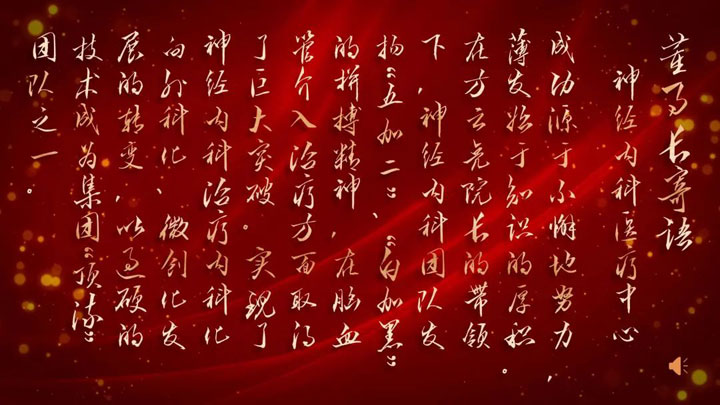 董事长寄语
神经内科医疗中心
成功源于不懈地努力，
薄发始于知识的厚积。
在方云亮院长的带领
下，神经内科团队发
扬“五加二”、“白加黑”
的拼搏精神，在脑血
管介入治疗方面取得
了巨大突破。实现了
神经内科治疗内科化
向外科化、微创化发
展的转变，以过硬的
技术成为集团“顶流”
团队之一。